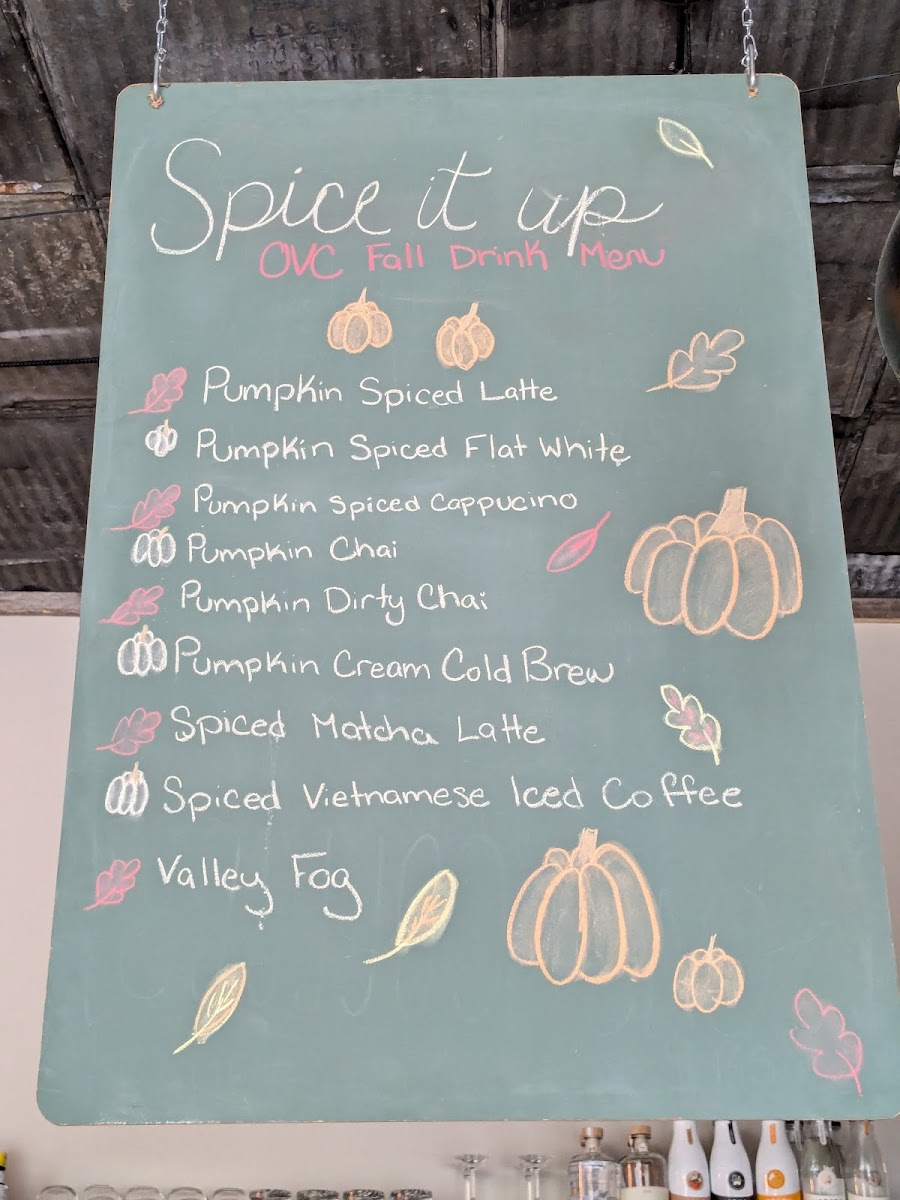 Spice it up
OVC Fall Drink Menu
Pumpkin Spiced Latte
Pumpkin Spiced Flat White
Pumpkin Spiced Cappucino
Pumpkin Chai
Pumpkin Dirty Chai
Pumpkin Cream Cold Brew
Spiced Matcha Latte
Spiced Vietnamese Iced Coffee
Valley Fog